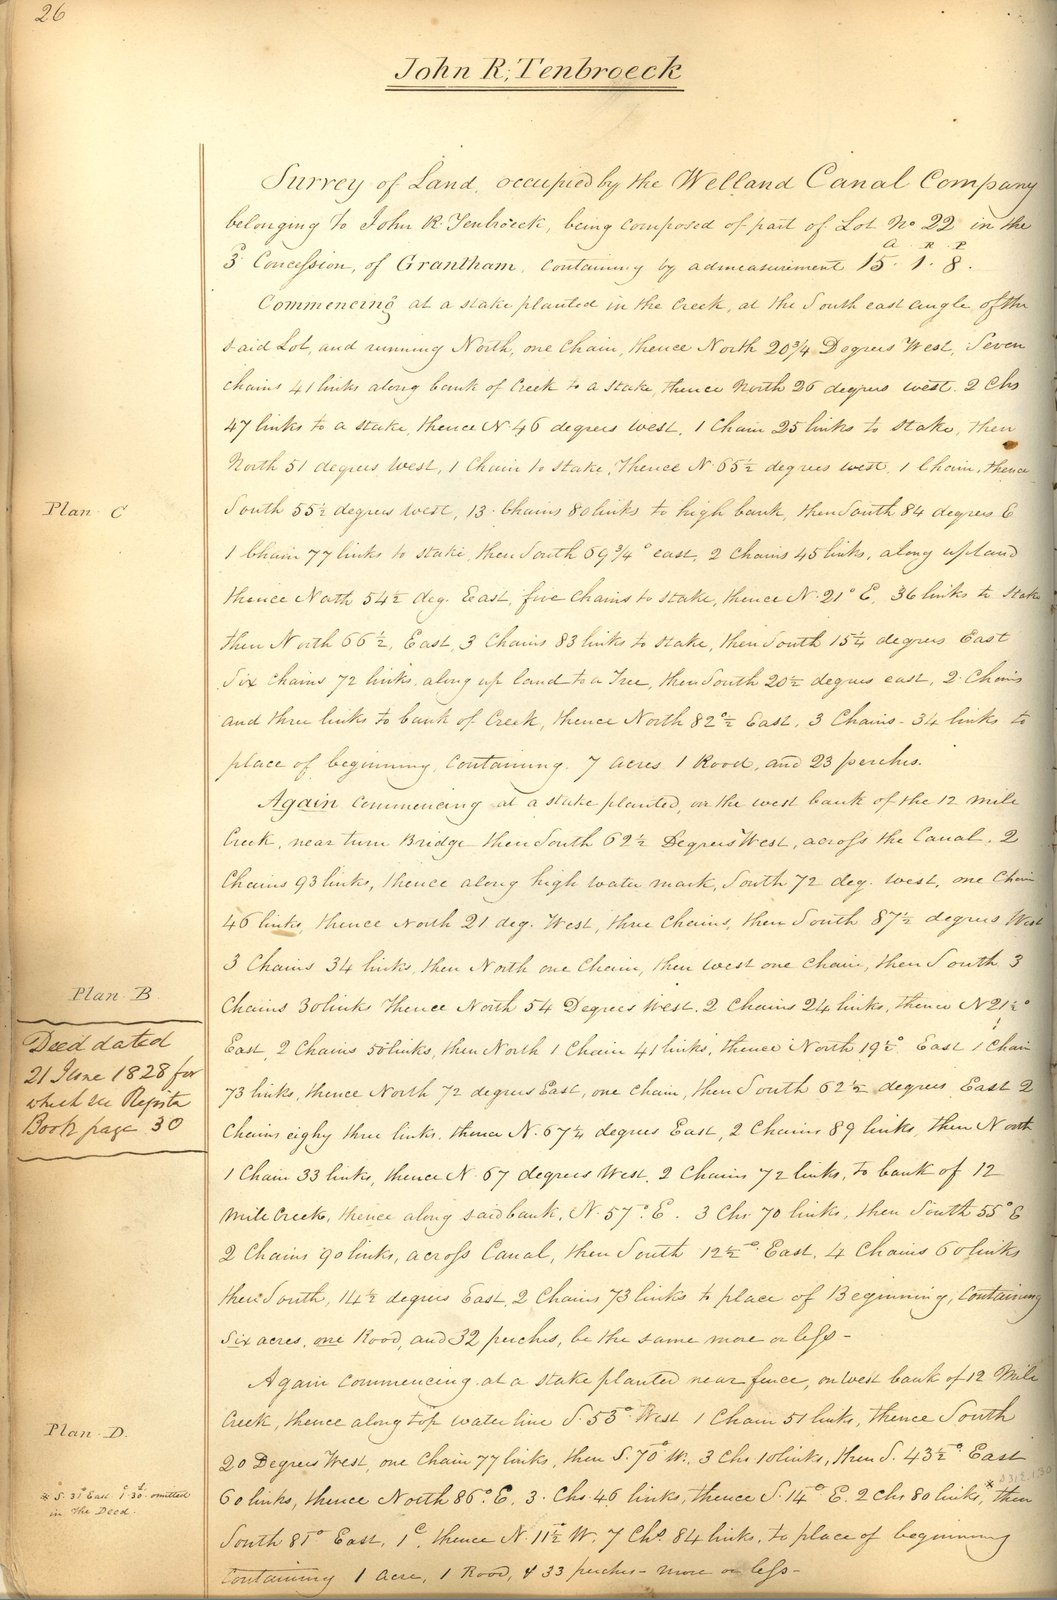 26
John R. Tenbroeck
Survey of Land, occupied by the Welland Canal Company
belonging to John R. Tenbroeck, being composed of part of Lot No 22 in the
3d Concession, of Grantham, containing by admeasurement 15A. 1R. 8P.
Commencing at a stake planted in the Creek, at the South east angle of the
said Lot, and running North, one Chain, thence North 20 3/4 Degrees West, Seven
chains 41 links along bank of Creek to a stake, thence North 26 degrees west. 2 Chs
47 links to a stake, thence N. 46 degrees west, 1 Chain 25 links to stake, then
North 51 degrees West, 1 Chain to stake, thence N. 65 1/2 degrees west, 1 Chain, thence
Plan C
South 55 1/2 degrees west, 13 Chains 80 links to high bank, then South 84 degrees E
1 Chain 77 links to stake, then South 69 3/4° east, 2 Chains 45 links, along upland
thence North 54 1/2 deg. East, five Chains to stake, thence N. 21° E. 36 links to stake
then North 66 1/2, East, 3 Chains 83 links to stake, then South 15 1/4 degrees East
Six Chains 72 links, along up land to a Tree, then South 20 1/2 degrees east, 2 Chains
and three links to bank of Creek, thence North 82° 1/2 East, 3 Chains - 34 links to
place of beginning, Containing 7 acres 1 Rood, and 23 perches.
Again Commencing at a stake planted, on the west bank of the 12 mile
Creek, near turn Bridge then South 62 1/2 Degrees West, across the Canal, 2
Chains 93 links, thence along high water mark, South 72 deg. west, one Chain
46 links, thence North 21 deg. West, three Chains, then South 87 1/2 degrees West
3 Chains 34 links, then North one Chain, then west one chain, then South 3
Plan B
Chains 30 links thence North 54 Degrees West. 2 Chains 24 links, thence N 21 1/2°
Deed dated
21 June 1828 for
which see Register
Book page 30
East, 2 Chains 50 links, then North 1 Chain 41 links, thence North 19 1/2° East 1 Chain
73 links, thence North 72 degrees East, one Chain, then South 62 1/2 degrees East 2
Chains eighy three links, thence N. 67 1/4 degrees East, 2 Chains 89 links, then North
1 Chain 33 links, thence N. 67 degrees West, 2 Chains 72 links, to bank of 12
Mile Creek, thence along said bank, N. 57° E. 3 Chs 70 links, then South 55° E
2 Chains 90 links, across Canal, then South 12 1/2° East, 4 Chains 60 links
then South, 14 1/2 degrees East, 2 Chains 73 links to place of Beginning, Containing
Six acres, one Rood, and 32 perches, be the same more or less -
Again Commencing at a stake planted near fence, on west bank of 12 Mile
Creek, thence along top water line S. 53° West 1 Chain 51 links, thence South
Plan D.
20 Degrees West, one Chain 77 links, then S. 70° W. 3 Chs 10 links, then S. 43 1/2° East
60 links, thence North 86° E. 3. Chs 46 links, thence S. 14° E. 2 Chs 80 links, * then
* S. 31° East 1c 30l omitted
in the Deed.
South 81° East, 1c, thence N. 11 1/2° W. 7 Chs. 84 links, to place of beginning
Containing 1 Acre, 1 Rood, & 33 perches - more or less -